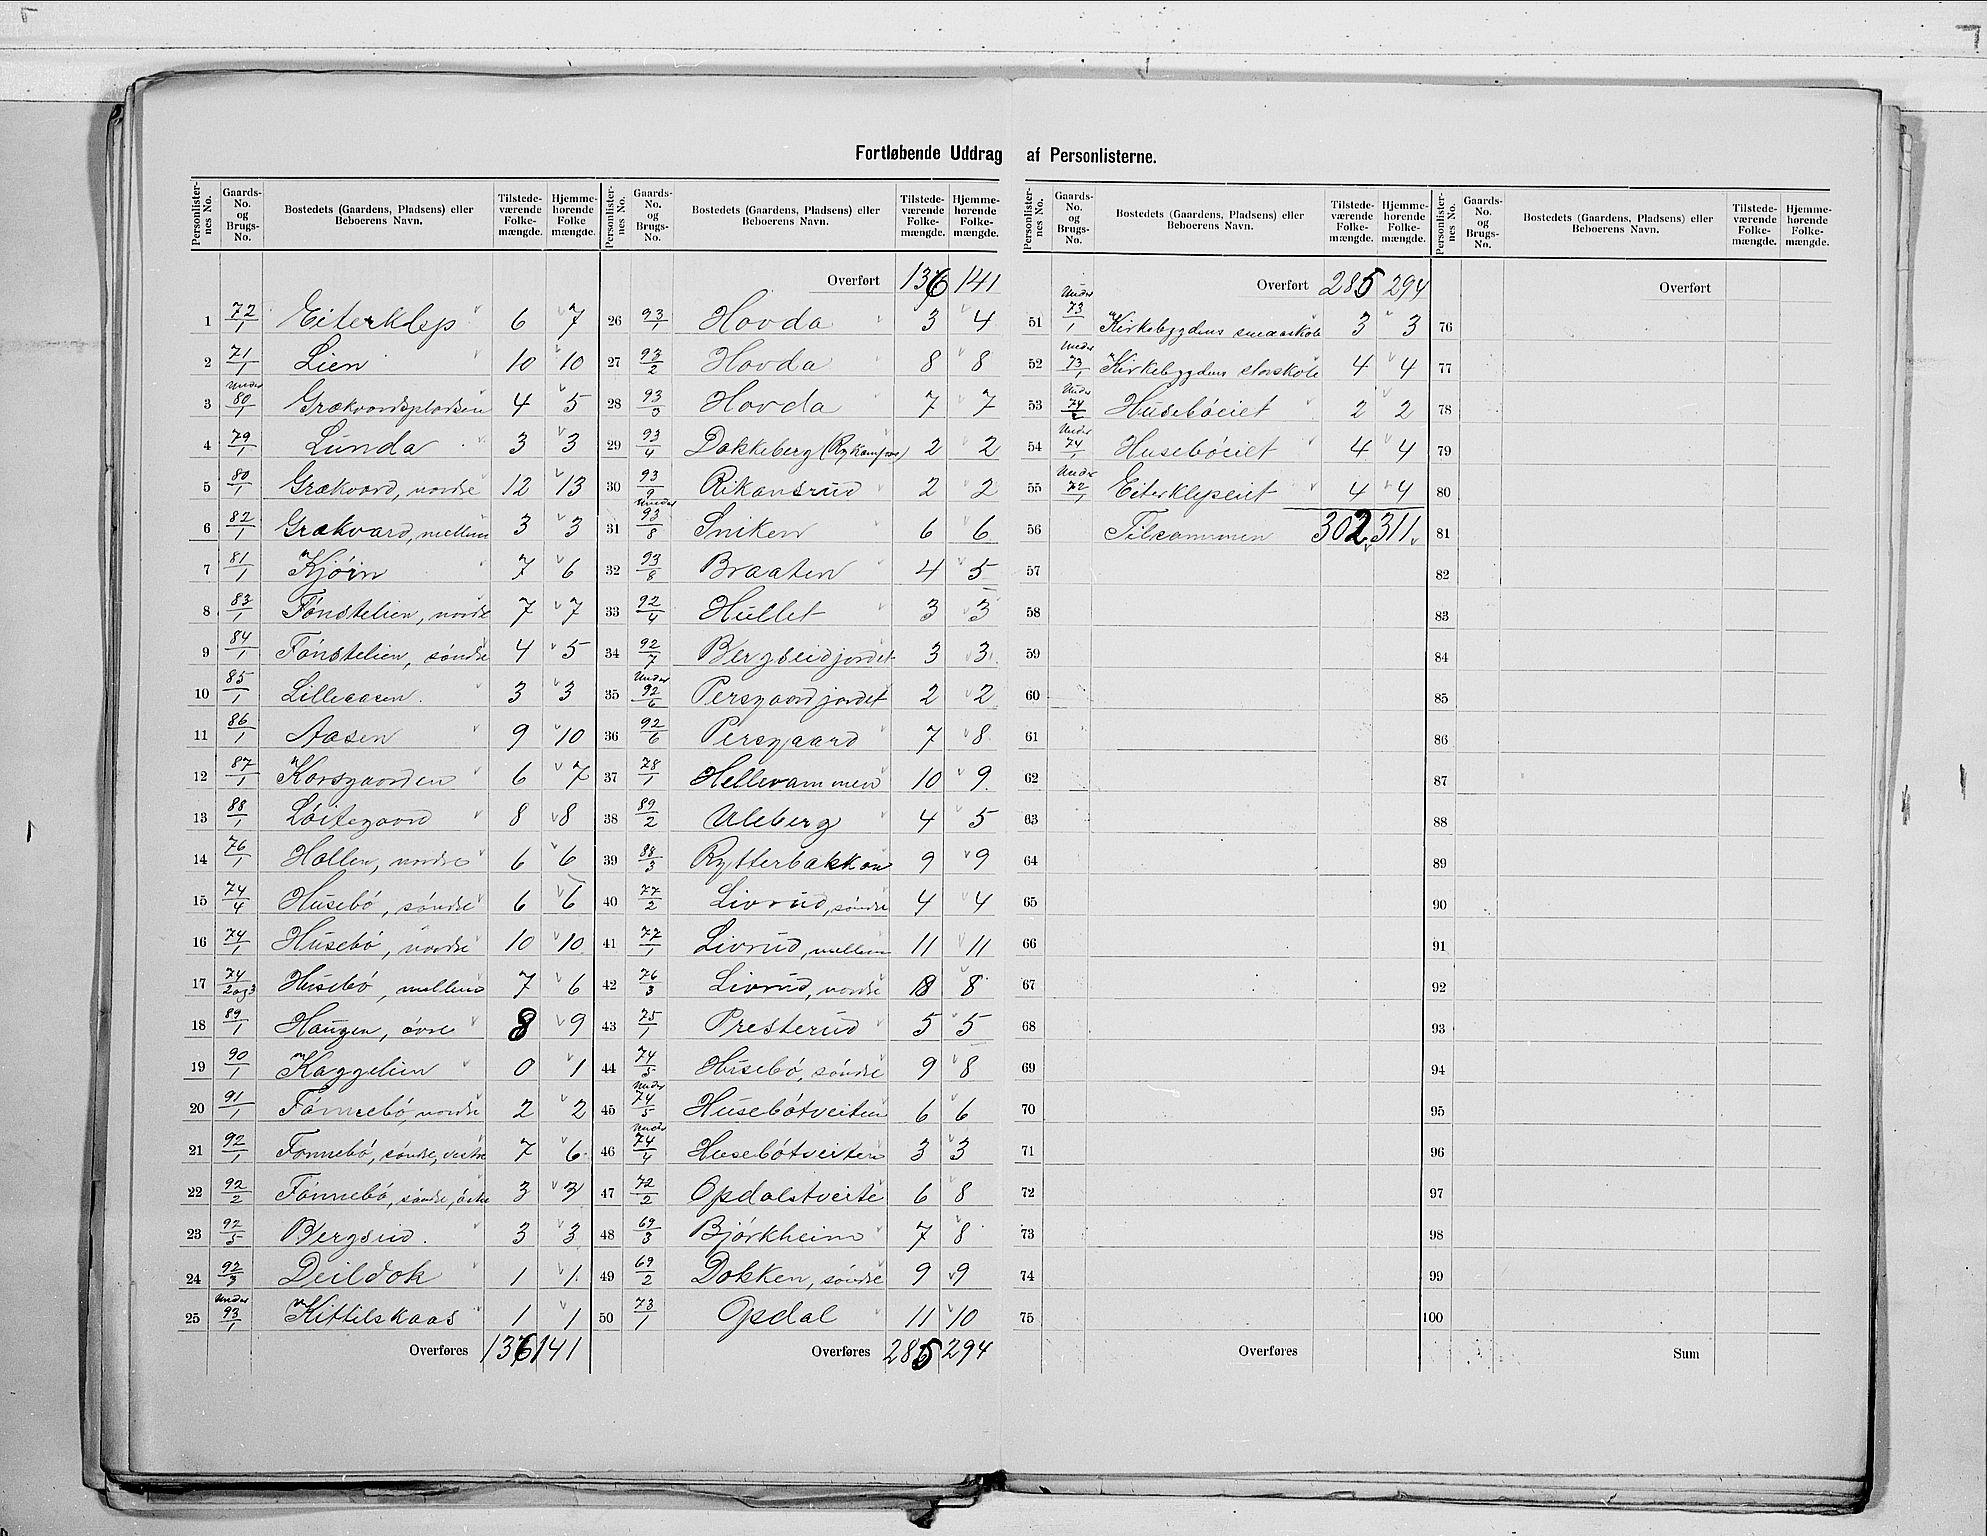 Fortløbende Uddrag af Personlisterne.
Personlisternes No. | Gaards-No. og Brugs-No. | Bostedets (Gaardens, Pladsens) eller Beboerens Navn. | Tilstedeværende Folkemængde. | Hjemmehørende Folke mængde.
1 72/1 Eiterklep 6 7
2 71/1 Lien 10 10
3 Under 80/1 Grækvardspladsen 4 5
4 79/1 Lunda 3 3
5 80/1 Grækvard, nordre 12 13
6 82/1 Grækvard, mellem 3 3
7 81/1 Kjørn 7 6
8 83/1 Fønstelien, nordre 7 7
9 84/1 Fønstelien, søndre 4 5
10 85/1 Lilleaasen. 3 3
11 86/1 Aasen 9 10
12 87/1 Korsgaarden 6 7
13 88/1 Løitegaard 8 8
14 76/1 Hallen, nordre 6 6
15 74/4 Husebø, søndre 6 6
16 74/1 Husebø, nordre 10 10
17 74/2 og 3 Husebø, mellem 7 6
18 89/1 Haugen, øvre 8 9
19 90/1 Kaggelien 0 1
20 91/1 Fønnebø, nordre 2 2
21 92/1 Fønnebø, søndre, vestre 7 6
22 92/2 Fønnebø, søndre, østre 3 3
23 92/5 Bergsud. 3 3
24 92/3 Deildok 1 1
25 Under 93/1 Kittilskaas 1 1
Overføres 136 141
Personlisternes No. | Gaards-No. og Brugs-No. | Bostedets (Gaardens, Pladsens) eller Beboerens Navn. | Tilstedeværende Folkemængde. | Hjemmehørende Folkemængde.
Overført 136 141
26 93/1 Hovda 3 4
27 93/2 Hovda 8 8
28 93/3 Hovda 7 7
29 93/4 Dokkeberg 2 2
30 93/9 Rikansrud 2 2
31 Under 93/8 Sniken 6 6
32 93/8 Braaten 4 5
33 92/4 Hullet 3 3
34 92/7 Bergseidjordet 3 3
35 Under 92/6 Persgaardjordet 2 2
36 92/6 Persgaard 7 8
37 78/1 Hellevammen 10 9
38 89/2 Uleberg 4 5
39 88/3 Rytterbakken 9 9
40 77/2 Livrud, søndre 4 4
41 77/1 Livrud, mellem 11 11
42 76/3 Livrud, nordre 8 8
43 75/1 Presterud 5 5
44 74/5 Husebø, søndre 9 8
45 Under 74/5 Husebøtveiten 6 6
46 Under 74/4 Husebøtveiten 3 3
47 72/2 Opdalstveite 6 8
48 69/3 Bjørkheim 7 8
49 69/2 Dokken, søndre 9 9
50 73/1 Opdal 11 10
Overføres 285 294
Personlisternes No. | Gaards-No. og Brugs-No. | Bostedets (Gaardens, Pladsens) eller Beboerens Navn. | Tilstedeværende Folkemængde. | Hjemmehørende Folkemængde.
Overført 285 294
51 Under 73/1 Kirkebygdens smaaskole 3 3
52 Under 73/1 Kirkebygdens storskole 4 4
53 Under 74/2 Husebøeiet 2 2
54 Under 74/1 Husebøeiet 4 4
55 Under 72/1 Eiterklepeiet 4 4
56 Tilsammen 302 311
57
58
59
60
61
62
63
64
65
66
67
68
69
70
71
72
73
74
75
Overføres
Personlisternes No. | Gaards-No. og Brugs-No. | Bostedets (Gaardens, Pladsens) eller Beboerens Navn. | Tilstedeværende Folkemængde. | Hjemmehørende Folkemængde.
Overført
76
77
78
79
80
81
82
83
84
85
86
87
88
89
90
91
92
93
94
95
96
97
98
99
100
Sum